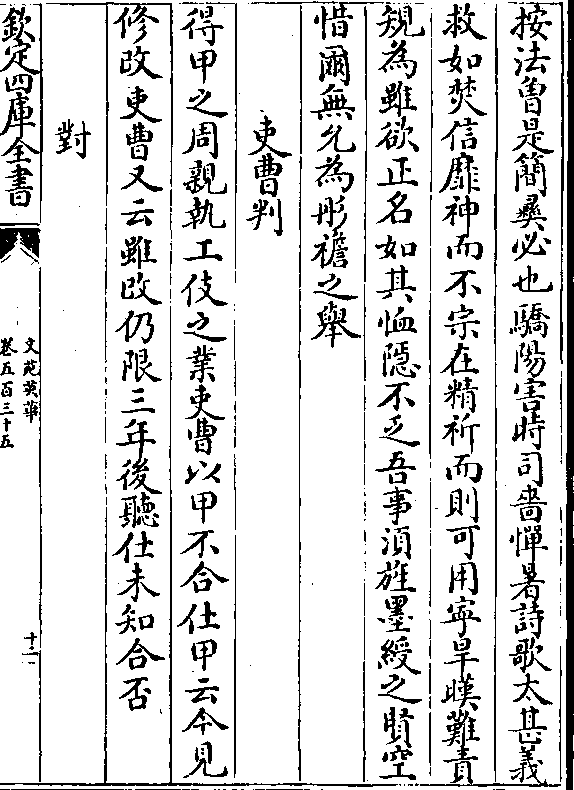 按法魯是簡彛必也驕陽害時司嗇憚暑詩歌太甚義
救如焚信靡神而不宗在精祈而則可用寜旱暵難責
覡為雖欲正名如其恤隱不乏吾事湏旌墨綬之賢空
惜爾無允為彤襜之舉
吏曹判
得甲之周親執工伎之業吏曹以甲不合仕甲云今見
修改吏曹又云雖改仍限三年後聽仕未知合否
對
欽定四庫全書
文苑英華
卷五百三十五
十二